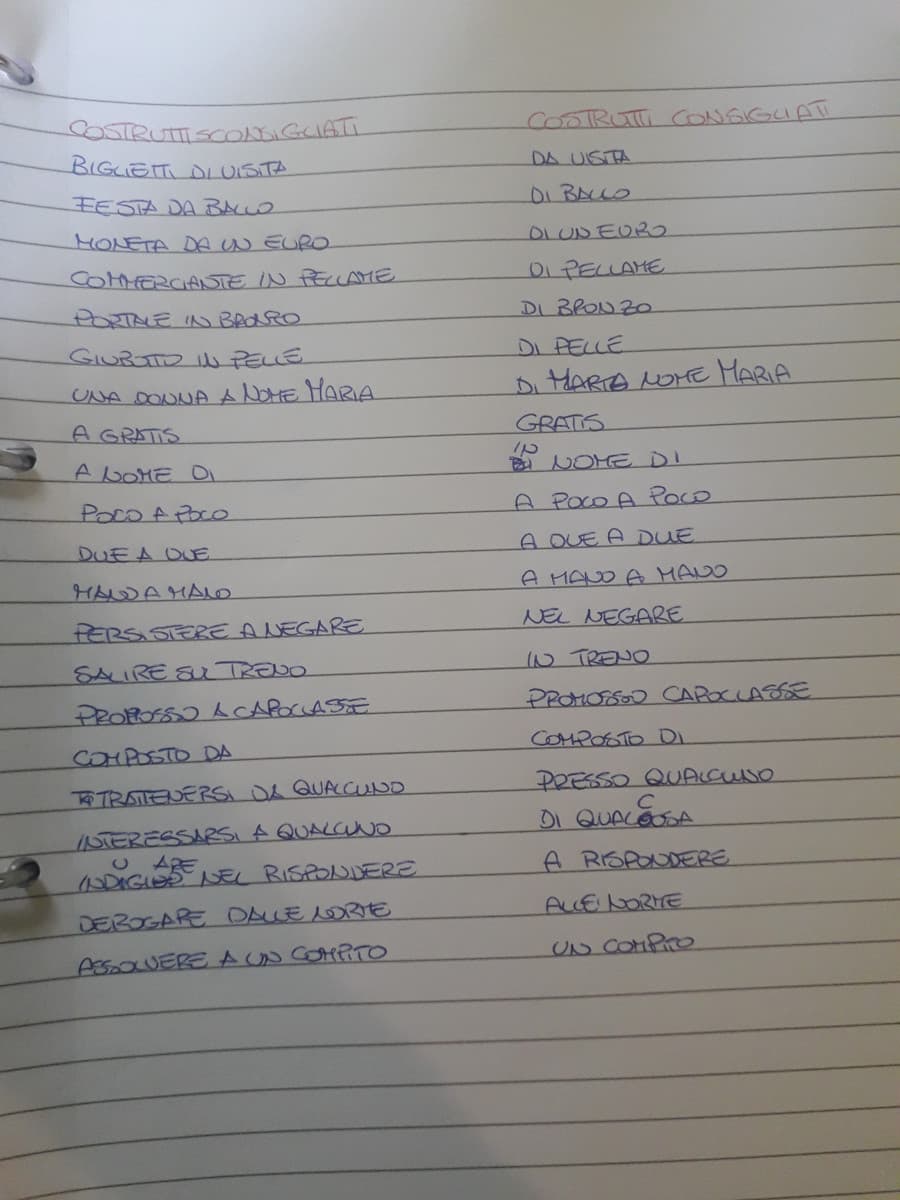 COSTRUTTI SCONSIGLIATI COSTRUTTI CONSIGLIATI
BIGLIETTI DI VISITA DA VISITA
FESTA DA BALLO DI BALLO
MONETA DA UN EURO DI UN EURO
COMMERCIANTE IN PELLAME DI PELLAME
PORTALE IN BRONZO DI BRONZO
GIUBOTTO IN PELLE DI PELLE
UNA DONNA A NOME MARIA DI NOME MARIA
A GRATIS GRATIS
A NOME DI IN NOME DI
POCO A POCO A POCO A POCO
DUE A DUE A DUE A DUE
MANO A MANO A MANO A MANO
PERSISTERE A NEGARE NEL NEGARE
SALIRE SUL TRENO IN TRENO
PROMOSSO A CAPOCLASSE PROMOSSO CAPOCLASSE
COMPOSTO DA COMPOSTO DI
TRATTENERSI DA QUALCUNO PRESSO QUALCUNO
INTERESSARSI A QUALCUNO DI QUALCOSA
INDUGIARE NEL RISPONDERE A RISPONDERE
DEROGARE DALLE NORME ALLE NORME
ASSOLVERE A UN COMPITO UN COMPITO